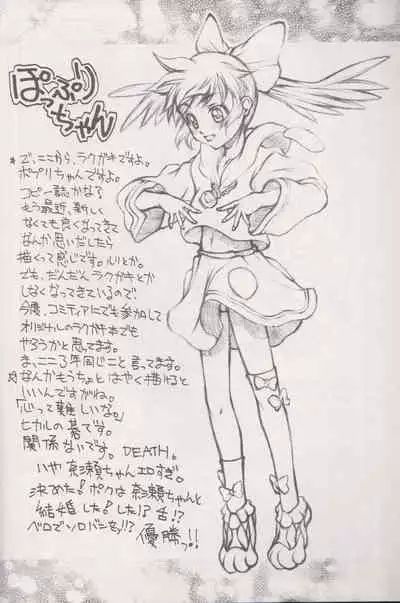 ぽぷりっちゃん
＊で、ここから、ラクガキですよ。
ポプリちゃんですよ。
コピー誌かな？
もう最近、新しく
なくても良くなってきて
なんか思いだしたら
描くって感じです。ルリとか。
でも、だんだんラクガキとか
しなくなってきているので
今度、コミティアにでも参加して
オリジナルのラクガキ本でも
やろうかと思ってます。
ま、ここ3年同じこと言ってます。
なんかもうちょっとはやく描けると
いいんですがね。
「心って難しいな。」
ヒカルの碁です。
関係ないです。DEATH。
いや 奈瀬ちゃんエロすぎ。
決めた！ボクは奈瀬ちゃんと
結婚した！した!!? 舌!?
ベロでソロバンをっ!!?
優勝っ!!